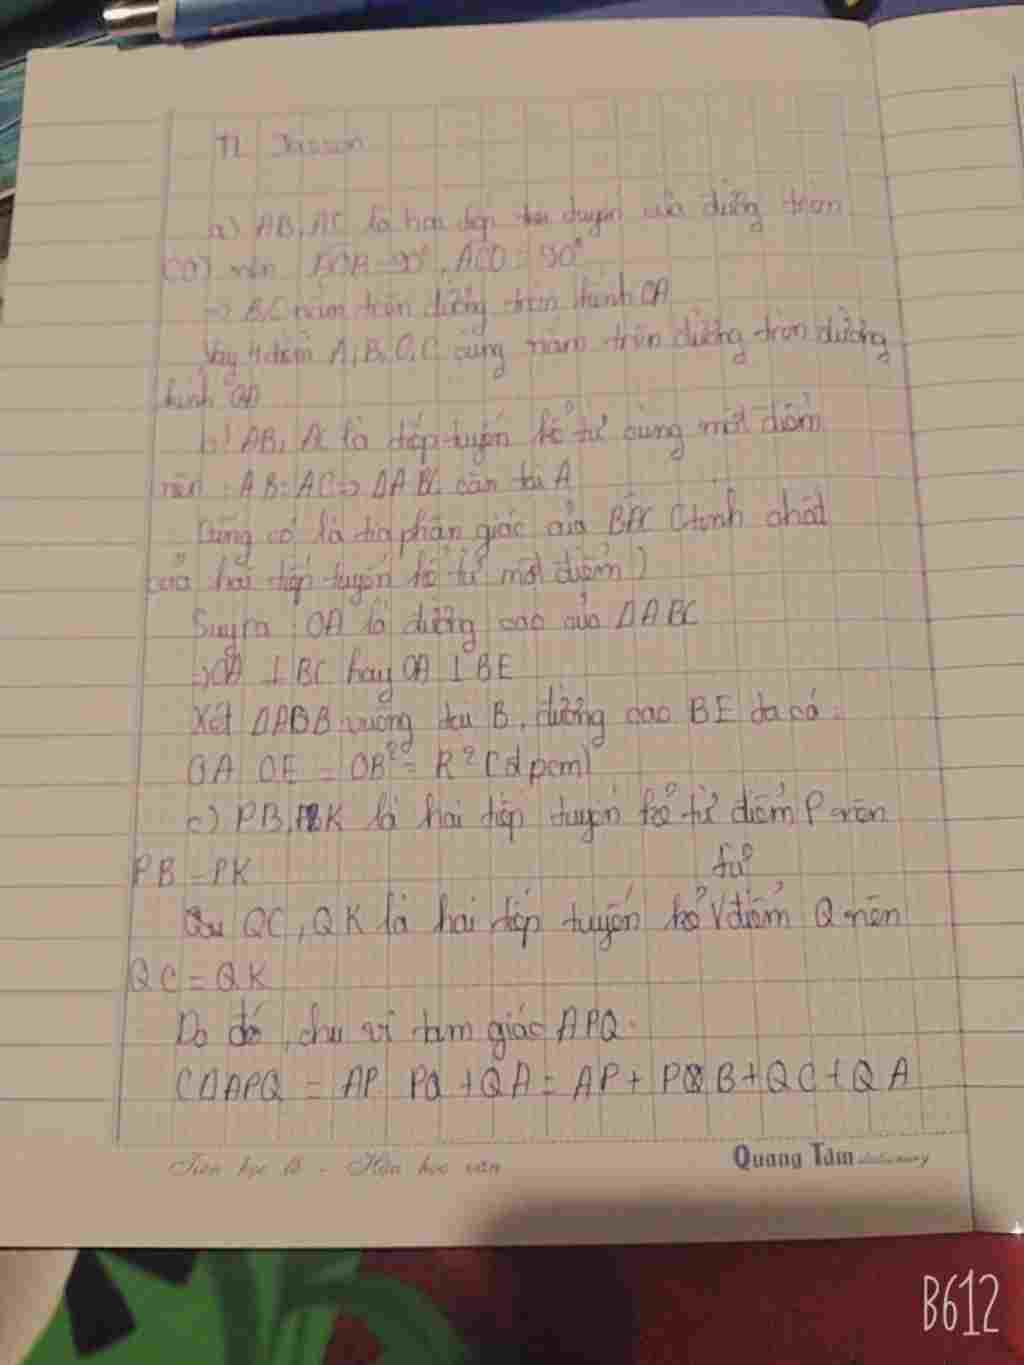 TL
a) AB, AC là hai tiếp tuyến của đường tròn
(O) nên = 90°, ACO = 90°
=> B, C nằm trên đường tròn kính OA
Vậy 4 điểm A, B, O, C cùng nằm trên đường tròn đường
kính OA
b) AB, AC là tiếp tuyến kẻ từ cùng một điểm
nên AB = AC => ΔABC cân tại A
là tia phân giác của BAC (tính chất
của hai tiếp tuyến kẻ từ một điểm)
Suy ra OA là đường cao của ΔABC
=> OA ⊥ BC hay OA ⊥ BE
Xét vuông tại B, đường cao BE ta có
OA OE = OB² = R² (đpcm)
c) PB, PK là hai tiếp tuyến kẻ từ điểm P nên
PB = PK
QC, QK là hai tiếp tuyến kẻ từ điểm Q nên
QC = QK
Do đó, chu vi tam giác APQ
CΔAPQ = AP PQ + QA = AP + P B + QC + QA
Tiên học lễ - Hậu học văn
Quang Tâm
B612